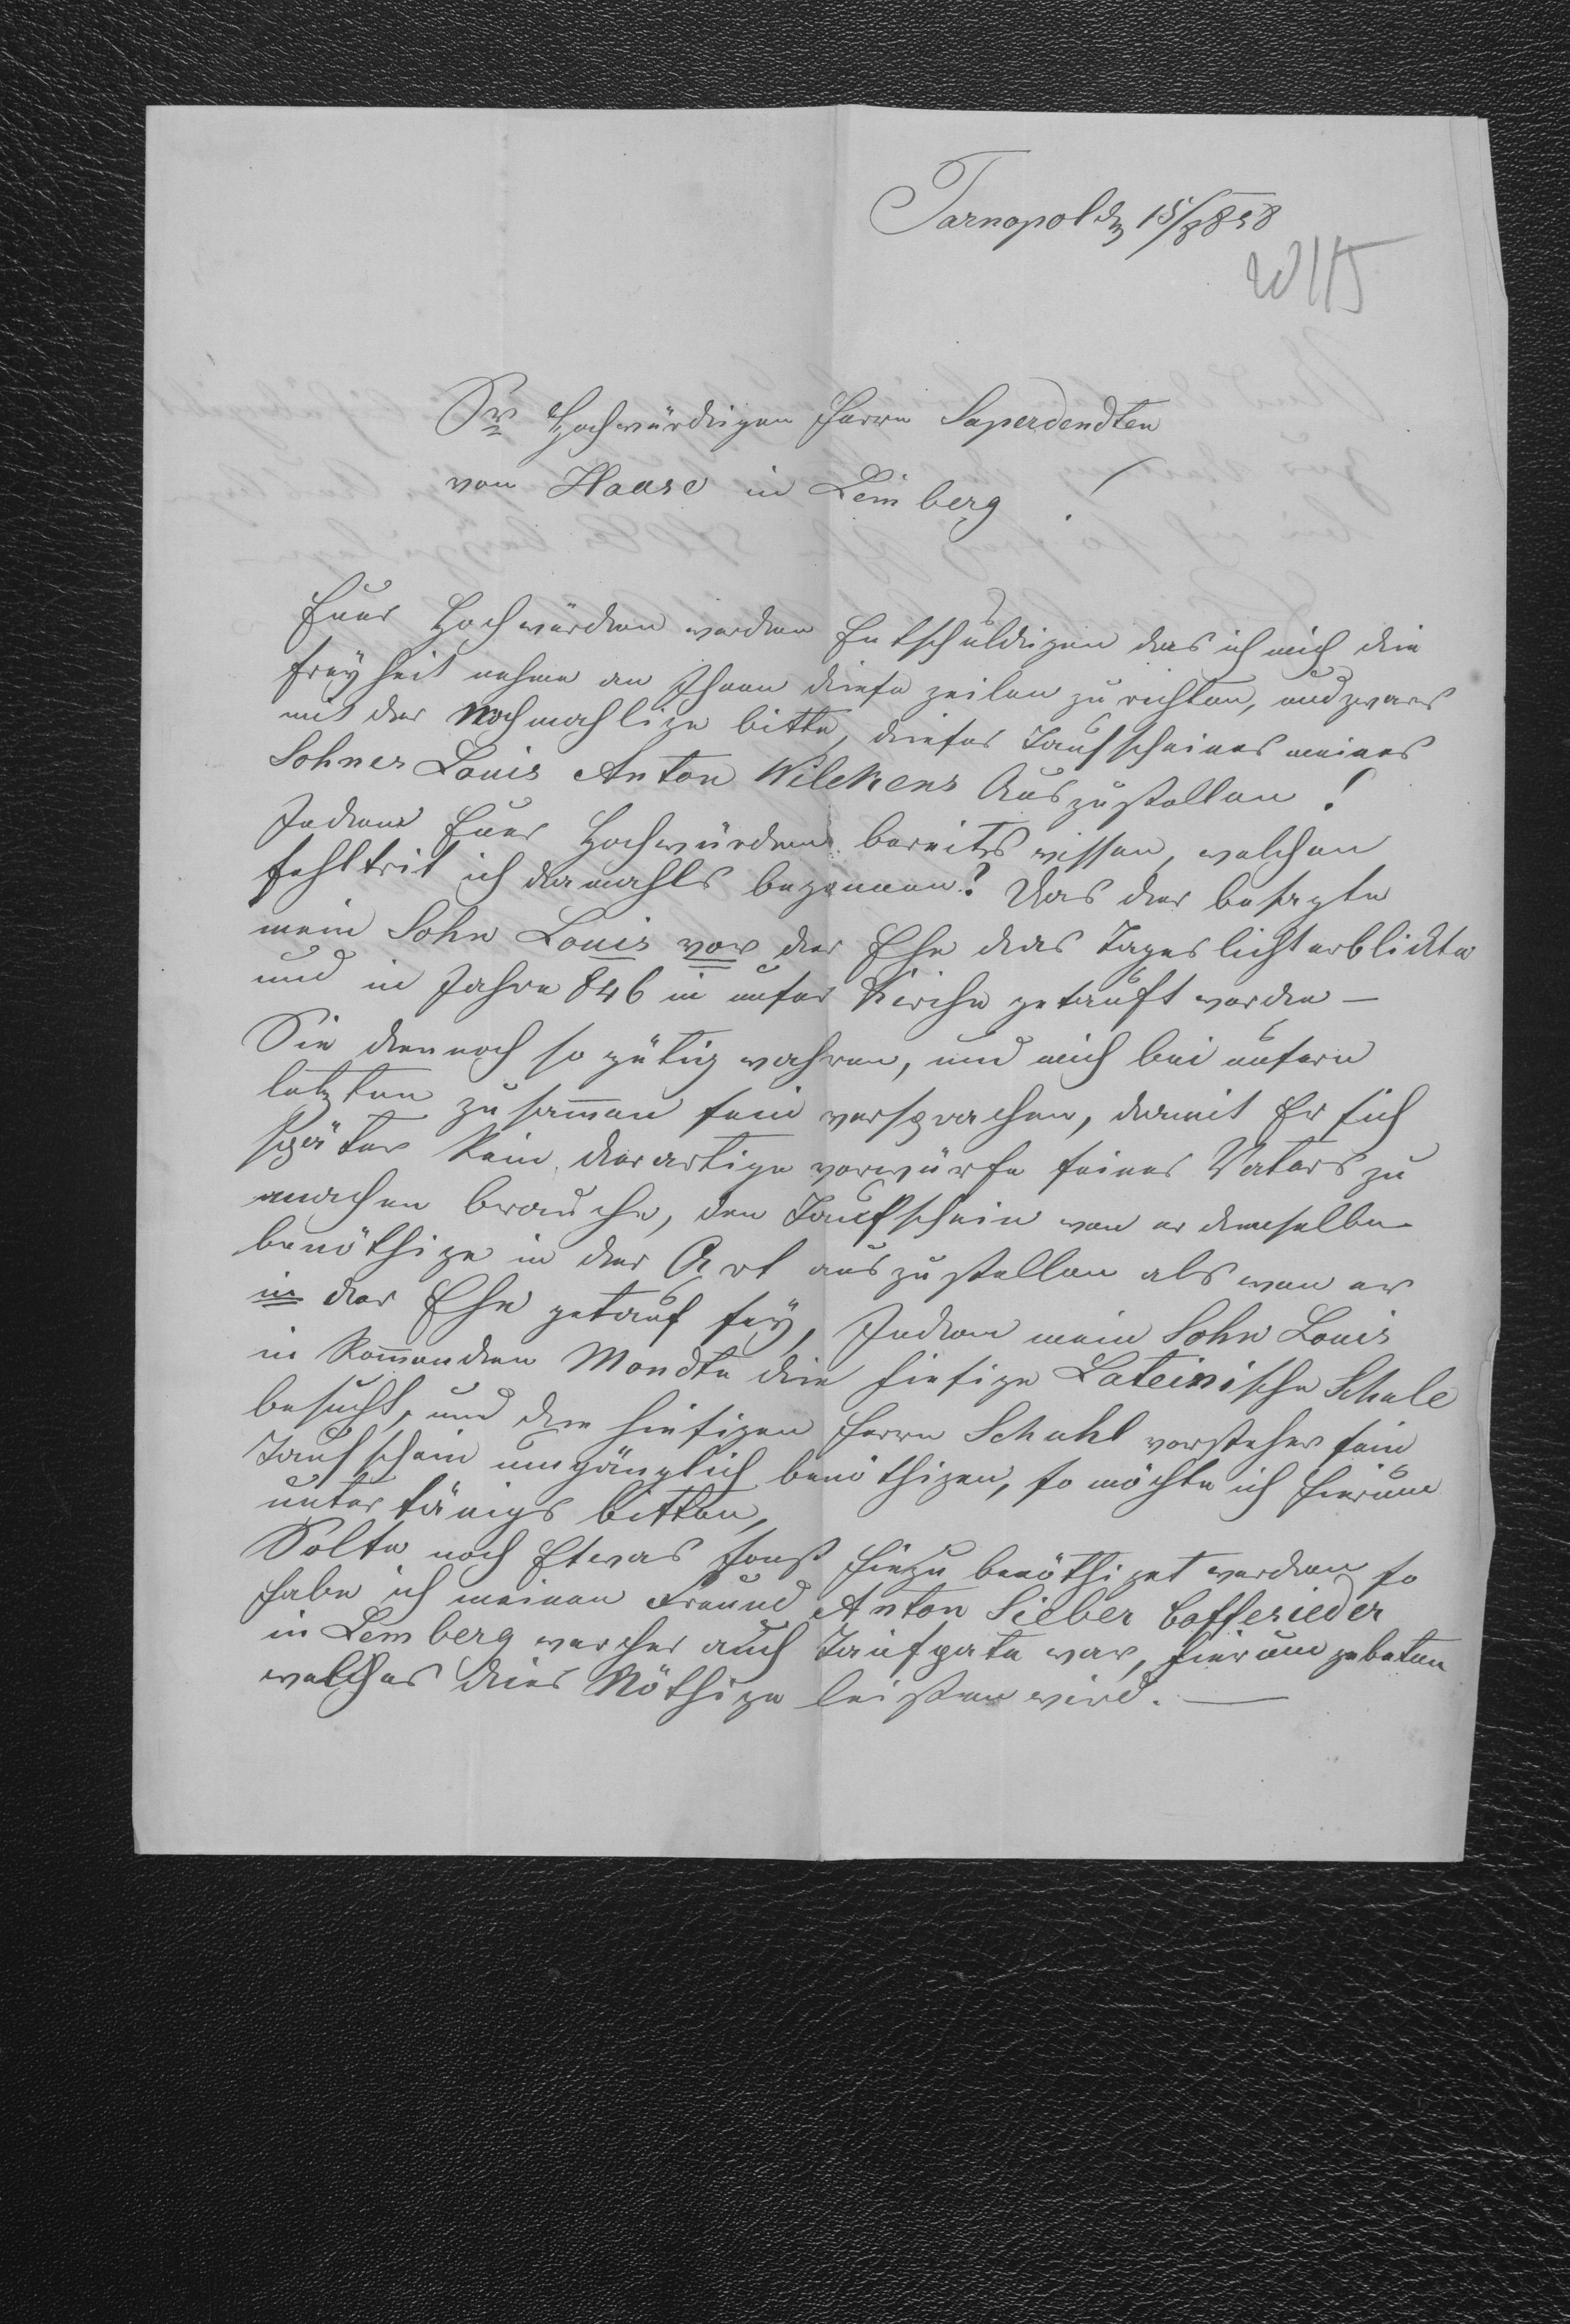 Tarnopol den 15/8 858
W 115
Sr Hochwürdigen Herrn Saperdendten
von Haase in Lemberg !
Euer Hochwürden werden Entschuldigen das ich mich die
freyheit nehme an Ihnen diese zeilen zu richten, und zwar
mit der Nochmahlige bitte, dieses Taufscheines meines
Sohnes Louis Anton Wilckens Auszustellen !
Indem Euer Hochwürden bereits wissen, welchen
fehltrit ich damahls begannen? Das der besagte
mein Sohn Louis vor der Ehe das Tageslicht erblickte
und in Jahre 846 in unser Kirche getauft worden —
Sie dennoch so gütig wahren, und mich bei unsern
letzten zusam̅en sein versprachen, damit Er sich
später kein derartige vorwürfe seines Vaters zu
machen brauche, den Taufschein wan er demselben
benöthige in der Art auszustellen als wan er
in der Ehe getauf sey, Indem mein Sohn Louis
in Kom̅enden Mondte die hiesige Lateinische Schule
besucht, und dem hiesigen Herrn Schuhl vorsteher sein
Taufschein umgänglich benöthigen, so möchte ich hierum
untertänigs bitten,
Solte noch Etwas sonst hiezu benöthiget werden so
habe ich meinen Freund Anton Sieber Caffesieder
in Lemberg welcher auch Taufpate war, hierum gebeten
welches dies Nöthige leisten wird. —